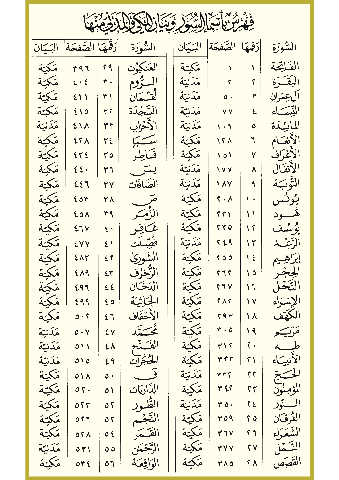 فهرس بأسماء السور وبيان المكي والمدني منها
السورة رقمها الصفحة البيان
الفاتحة ١ ١ مكية
البقرة ٢ ٢ مدنية
آل عمران ٣ ٥٠ مدنية
النساء ٤ ٧٧ مدنية
المائدة ٥ ١٠٦ مدنية
الأنعام ٦ ١٢٨ مكية
الأعراف ٧ ١٥١ مكية
الأنفال ٨ ١٧٧ مدنية
التوبة ٩ ١٨٧ مدنية
يونس ١٠ ٢٠٨ مكية
هود ١١ ٢٢١ مكية
يوسف ١٢ ٢٣٥ مكية
الرعد ١٣ ٢٤٩ مدنية
إبراهيم ١٤ ٢٥٥ مكية
الحجر ١٥ ٢٦٢ مكية
النحل ١٦ ٢٦٧ مكية
الإسراء ١٧ ٢٨٢ مكية
الكهف ١٨ ٢٩٣ مكية
مريم ١٩ ٣٠٥ مكية
طه ٢٠ ٣١٢ مكية
الأنبياء ٢١ ٣٢٢ مكية
الحج ٢٢ ٣٣٢ مدنية
المؤمنون ٢٣ ٣٤٢ مكية
النور ٢٤ ٣٥٠ مدنية
الفرقان ٢٥ ٣٥٩ مكية
الشعراء ٢٦ ٣٦٧ مكية
النمل ٢٧ ٣٧٧ مكية
القصص ٢٨ ٣٨٥ مكية
السورة رقمها الصفحة البيان
العنكبوت ٢٩ ٣٩٦ مكية
الروم ٣٠ ٤٠٤ مكية
لقمان ٣١ ٤١١ مكية
السجدة ٣٢ ٤١٥ مكية
الأحزاب ٣٣ ٤١٨ مدنية
سبأ ٣٤ ٤٢٨ مكية
فاطر ٣٥ ٤٣٤ مكية
يس ٣٦ ٤٤٠ مكية
الصافات ٣٧ ٤٤٦ مكية
ص ٣٨ ٤٥٣ مكية
الزمر ٣٩ ٤٥٨ مكية
غافر ٤٠ ٤٦٧ مكية
فصلت ٤١ ٤٧٧ مكية
الشورى ٤٢ ٤٨٣ مكية
الزخرف ٤٣ ٤٨٩ مكية
الدخان ٤٤ ٤٩٦ مكية
الجاثية ٤٥ ٤٩٩ مكية
الأحقاف ٤٦ ٥٠٢ مكية
محمد ٤٧ ٥٠٧ مدنية
الفتح ٤٨ ٥١١ مدنية
الحجرات ٤٩ ٥١٥ مدنية
ق ٥٠ ٥١٨ مكية
الذاريات ٥١ ٥٢٠ مكية
الطور ٥٢ ٥٢٣ مكية
النجم ٥٣ ٥٢٦ مكية
القمر ٥٤ ٥٢٨ مكية
الرحمن ٥٥ ٥٣١ مدنية
الواقعة ٥٦ ٥٣٤ مكية